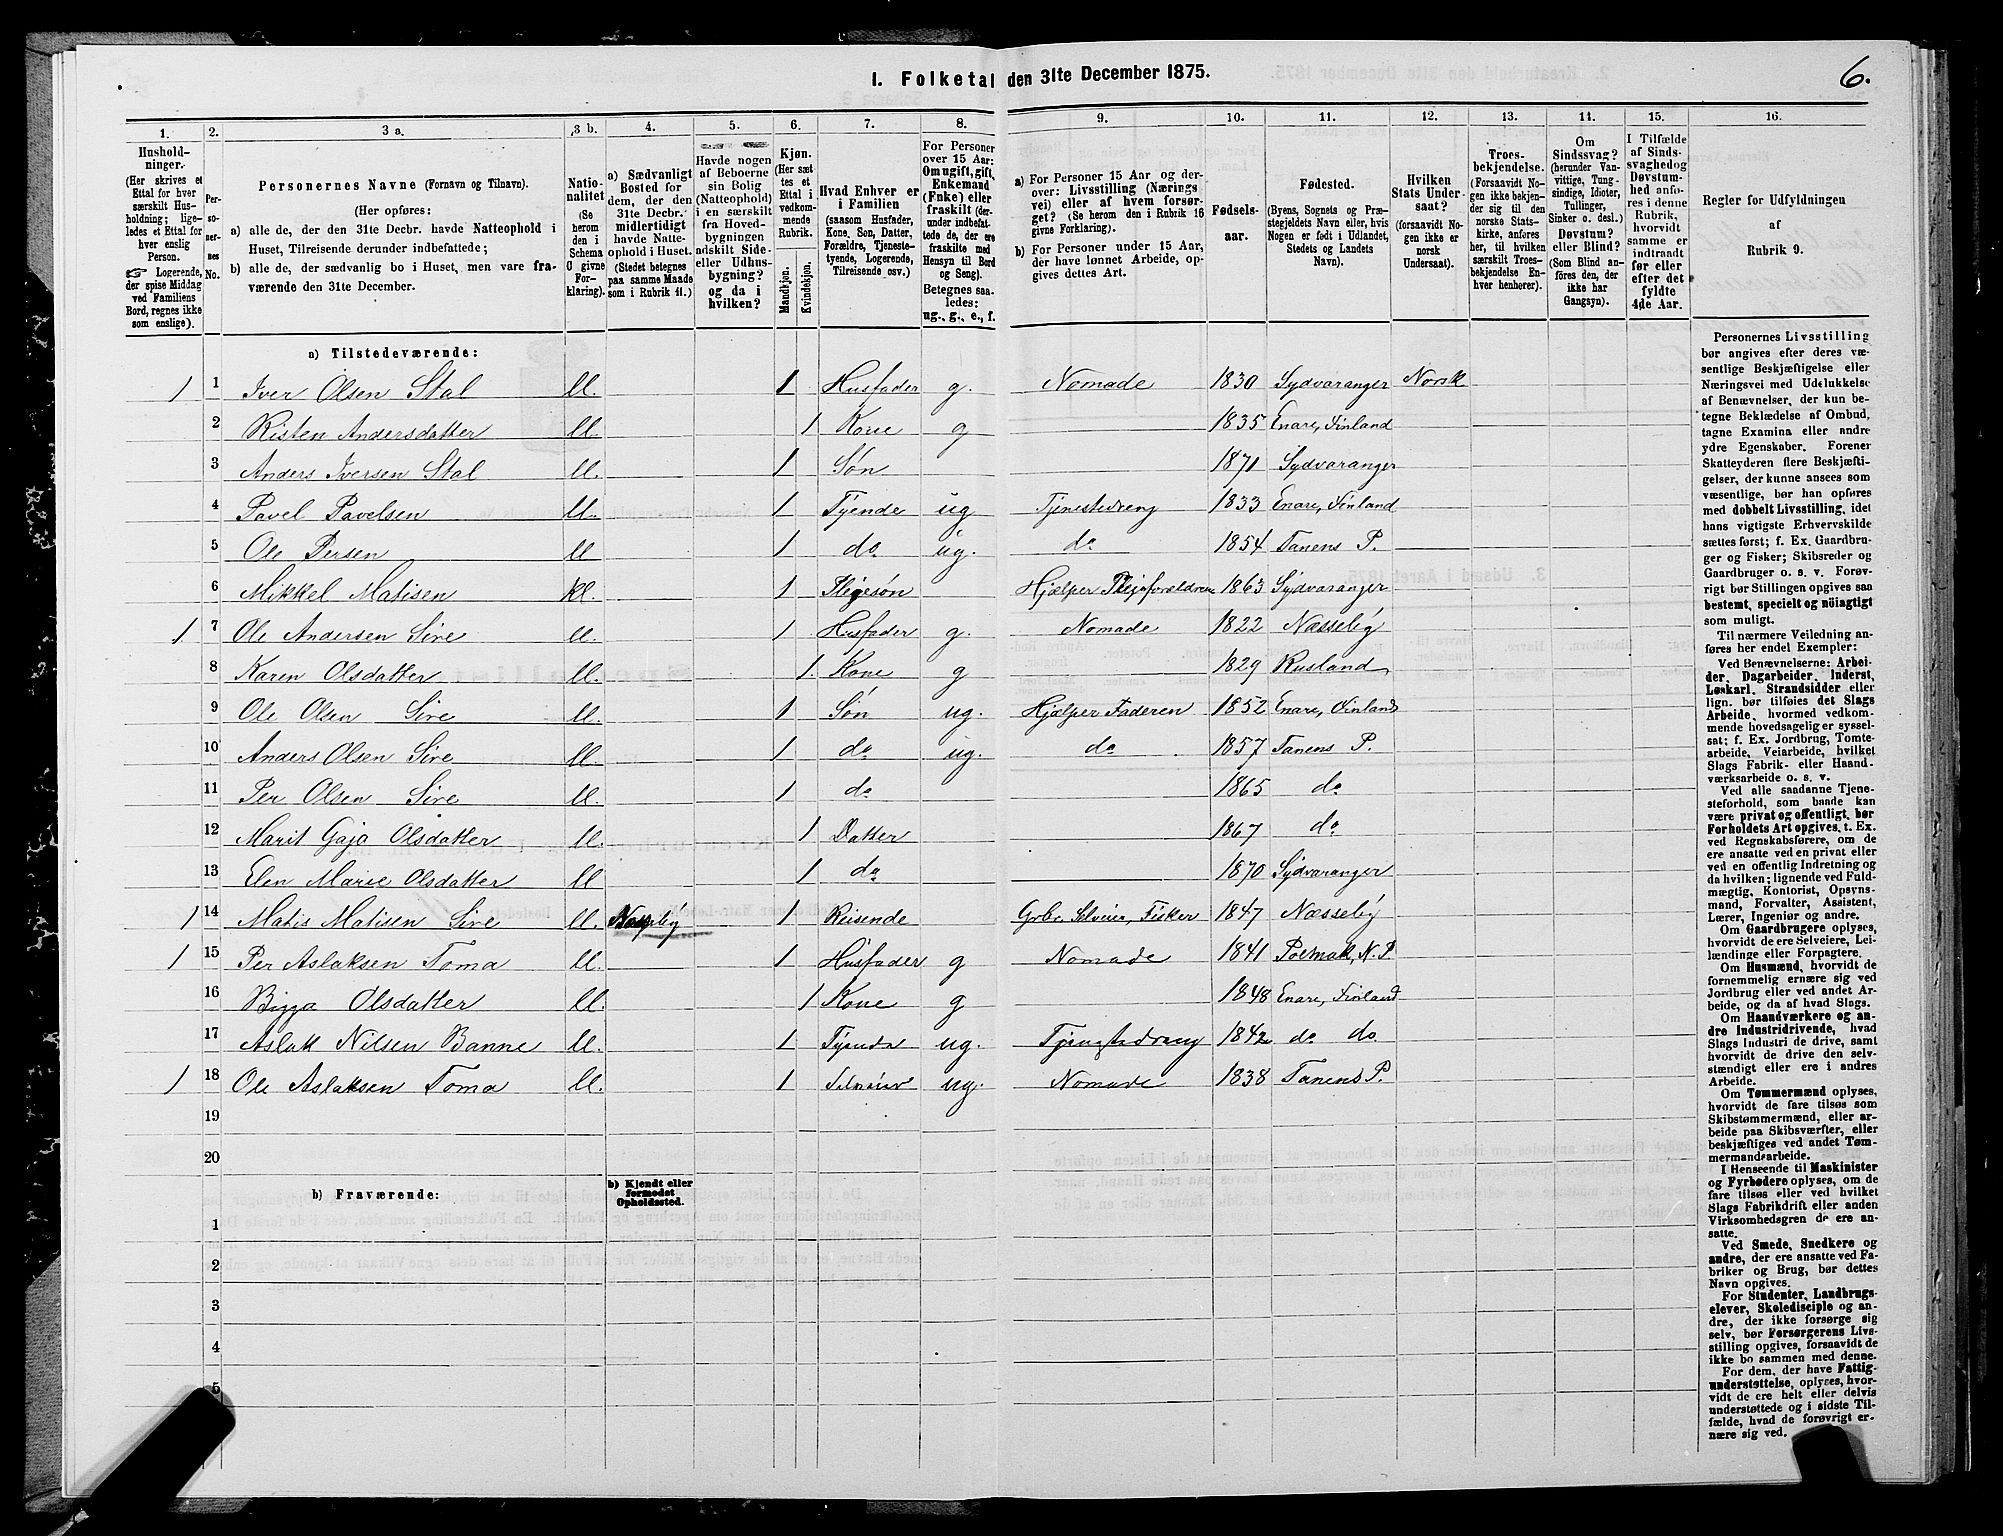 I. Folketal den 31te December 1875.
6.
1. 2. 3 a. 3 b. 4. 5. 6. 7. 8. 9. 10. 11. 12. 13. 14. 15. 16.
Husholdninger. (Her skrives et Ettal for hver særskilt Husholdning; ligeledes et Ettal for hver enslig Person. ☞ Logerende, der spise Middag ved Familiens Bord, regnes ikke som enslige).
Personernes No.
Personernes Navne (Fornavn og Tilnavn).
(Her opføres:
a) alle de, der den 31te Decbr. havde Natteophold i Huset, Tilreisende derunder indbefattede;
b) alle de, der sædvanlig bo i Huset, men vare fraværende den 31te December.
Nationalitet (Se herom den i Schema O givne Forklaring).
a) Sædvanligt Bosted for dem, der den 31te Decbr. midlertidigt havde Natteophold i Huset. (Stedet betegnes paa samme Maade som i Rubrik 11.)
Havde nogen af Beboerne sin Bolig (Natteophold) i en særskilt fra Hovedbygningen adskilt Side- eller Udhusbygning? og da i hvilken?
Kjøn. (Her sættes et Ettal i vedkommende Rubrik. Mandkjøn. Kvindekjøn.
Hvad Enhver er i Familien (saasom Husfader, Kone, Søn, Datter, Forældre, Tjenestetyende, Logerende, Tilreisende osv.)
For Personer over 15 Aar: Om ugift, gift, Enkemand (Enke) eller fraskilt (derunder indbefattede de, der ere fraskilte med Hensyn til Bord og Seng). Betegnes saaledes: ug., g., e., f.
a) For Personer 15 Aar og derover: Livsstilling (Næringsvei) eller af hvem forsørget? (Se herom den i Rubrik 16 givne Forklaring).
b) For Personer under 15 Aar, der have lønnet Arbeide, opgives dettes Art.
Fødselsaar.
Fødested. (Byens, Sognets og Præstegjeldets Navn eller, hvis Nogen er født i Udlandet, Stedets og Landets Navn).
Hvilken Stats Undersaat? (forsaavidt Nogen ikke er norsk Undersaat).
Troesbekjendelse. (Forsaavidt Nogen ikke bekjender sig til den norske Statskirke, anføres her, til hvilken særskilt Troesbekjendelse Enhver henhører).
Om Sindssvag? (herunder Vanvittige, Tungsindige, Idioter, Tullinger, Sinker o. desl.) Døvstum? eller Blind? (Som Blind anføres den, der ikke har Gangsyn).
I Tilfælde af Sindssvaghed og Døvstumhed anføres i denne Rubrik, hvorvidt samme er indtraadt før eller efter det fyldte 4de Aar.
Regler for Udfyldningen af Rubrik 9.
a) Tilstedeværende:
1 1 Iver Olsen Stal ll. 1 Husfader g. Nomade 1830 Sydvaranger Norsk
2 Risten Andersdatter ll. 1 Kone g 1835 Enare, Finland
3 Anders Iversen Stal ll. 1 Søn 1871 Sydvaranger
4 Pavel Pavelsen ll. 1 Tyende ug Tjenestedreng 1833 Enare, Finland
5 Ole Persen ll 1 do ug. do 1854 Tanens P.
6 Mikkel Matisen kl. 1 Plegesøn Hjælper Plejeforeldrene 1863 Sydvaranger
1 7 Ole Andersen Sire ll. 1 Husfader g. Nomade 1822 Næsseby
8 Karen Olsdatter ll. 1. Kone g 1829 Rusland
9 Ole Olsen Sire ll. 1 Søn ug. Hjælper Faderen 1852 Enare, Finland
10 Anders Olsen Sire ll. 1 do ug. do 1857 Tanens P.
11 Per Olsen Sire ll. 1 do 1865 do
12 Marit Gaja Olsdatter ll. 1 Datter 1867 do
13 Elen Marie Olsdatter ll 1 do 1870 Sydvaranger
1 14 Matis Matisen Sire ll. 1 Reisende Grbr. Selveier, Fisker 1847 Næsseby
1 15 Per Aslaksen Toma ll. 1 Husfader g Nomade 1841 Polmak, N. P.
16 Bigga Olsdatter ll. 1 Kone g 1848 Enare, Finland
17 Aslak Nilsen Banne ll. 1 Tyende ug. Tjenestedreng 1842 do do
1 18 Ole Aslaksen Toma ll. 1 ug. Nomade 1838 Tanens P.
19
20
b) Fraværende:
b) Kjendt eller formodet Opholdssted.
1
2
3
4
5
Personernes Livsstilling
bør angives efter deres væ-
sentlige Beskjæftigelse eller
Næringsvei med Udelukkelse
af Benævnelser, der kun be-
tegne Beklædelse af Ombud,
tagne Examina eller andre
ydre Egenskaber. Forener
Skatteyderen flere Beskjæfti-
gelser, der kunne ansees som
væsentlige, bør han opføres
med dobbelt Livsstilling, idet
hans vigtigste Erhvervskilde
sættes først; f. Ex. Gaardbru-
ger og Fisker; Skibsreder og
Gaardbruger o. s. v. Forøv-
rigt bør Stillingen opgives saa
bestemt, specielt og nöiagtigt
som muligt.
Til nærmere Veiledning an-
føres her endel Exempler:
Ved Benævnelserne: Arbei-
der, Dagarbeider, Inderst,
Løskarl, Strandsidder eller
lign. bør tilføies det Slags
Arbeide, hvormed vedkom-
mende hovedsagelig er syssel-
sat; f. Ex. Jordbrug, Tomte-
arbeide, Veiarbeide, hvilket
Slags Fabrik- eller Haand-
værksarbeide o. s. v.
Ved alle saadanne Tjene-
steforhold, som baade kan
være privat og offentligt, bør
Forholdets Art opgives, t. Ex.
ved Regnskabsførere, om de
ere ansatte ved en privat eller
ved en offentlig Indretning og
da hvilken; lignende ved Fuld-
mægtig, Kontorist, Opsyns-
mand, Forvalter, Assistent,
Lærer, Ingeniør og andre.
Om Gaardbrugere oplyses,
hvorvidt de ere Selveiere, Lei-
lændinge eller Forpagtere.
Om Husmænd, hvorvidt de
fornemmelig ernære sig ved
Jordbrug eller ved andet Ar-
beide, og da af hvad Slags.
Om Haandværkere og an-
dre Industridrivende, hvad
Slags Industri de drive, samt
hvorvidt de drive den selv-
stændigt eller ere i andres
Arbeide.
Om Tømmermænd oplyses,
hvorvidt de fare tilsøs som
Skibstømmermænd, eller ar-
beide paa Skibsværfter, eller
beskjæftiges ved andet Tøm-
mermandsarbeide.
I Henseende til Maskinister
og Fyrbødere oplyses, om de
fare tilsøs eller ved hvilket
Slags Fabrikdrift eller anden
Virksomhedsgren de ere an-
satte.
Ved Smede, Snedkere og
andre, der ere ansatte ved Fa-
briker og Brug, bør dettes
Navn opgives.
For Studenter, Landbrugs-
elever, Skoledisciple og an-
dre, der ikke forsørge sig
selv, bør Forsørgerens Livs-
stilling opgives, forsaavidt de
ikke bo sammen med denne.
For dem, der have Fattig-
understøttelse, oplyses, hvor-
vidt de ere helt eller delvis
understøttede og i sidste Til-
fælde, hvad de forøvrigt er-
nære sig ved.